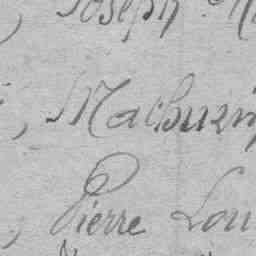 , Joseph
, Mathurin
, Pierre Lou